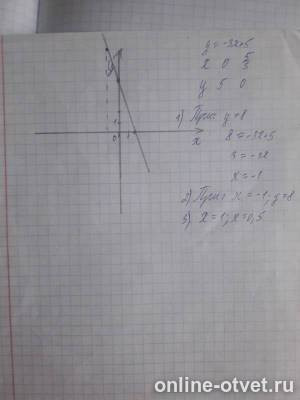 y=-3x+5
x 0 5/3
y 5 0
1) При y=8
8=-3x+5
3=-3x
x=-1
2) При x=-1; y=8
3) x=1; x=0,5
y
x
0
1
online-otvet.ru